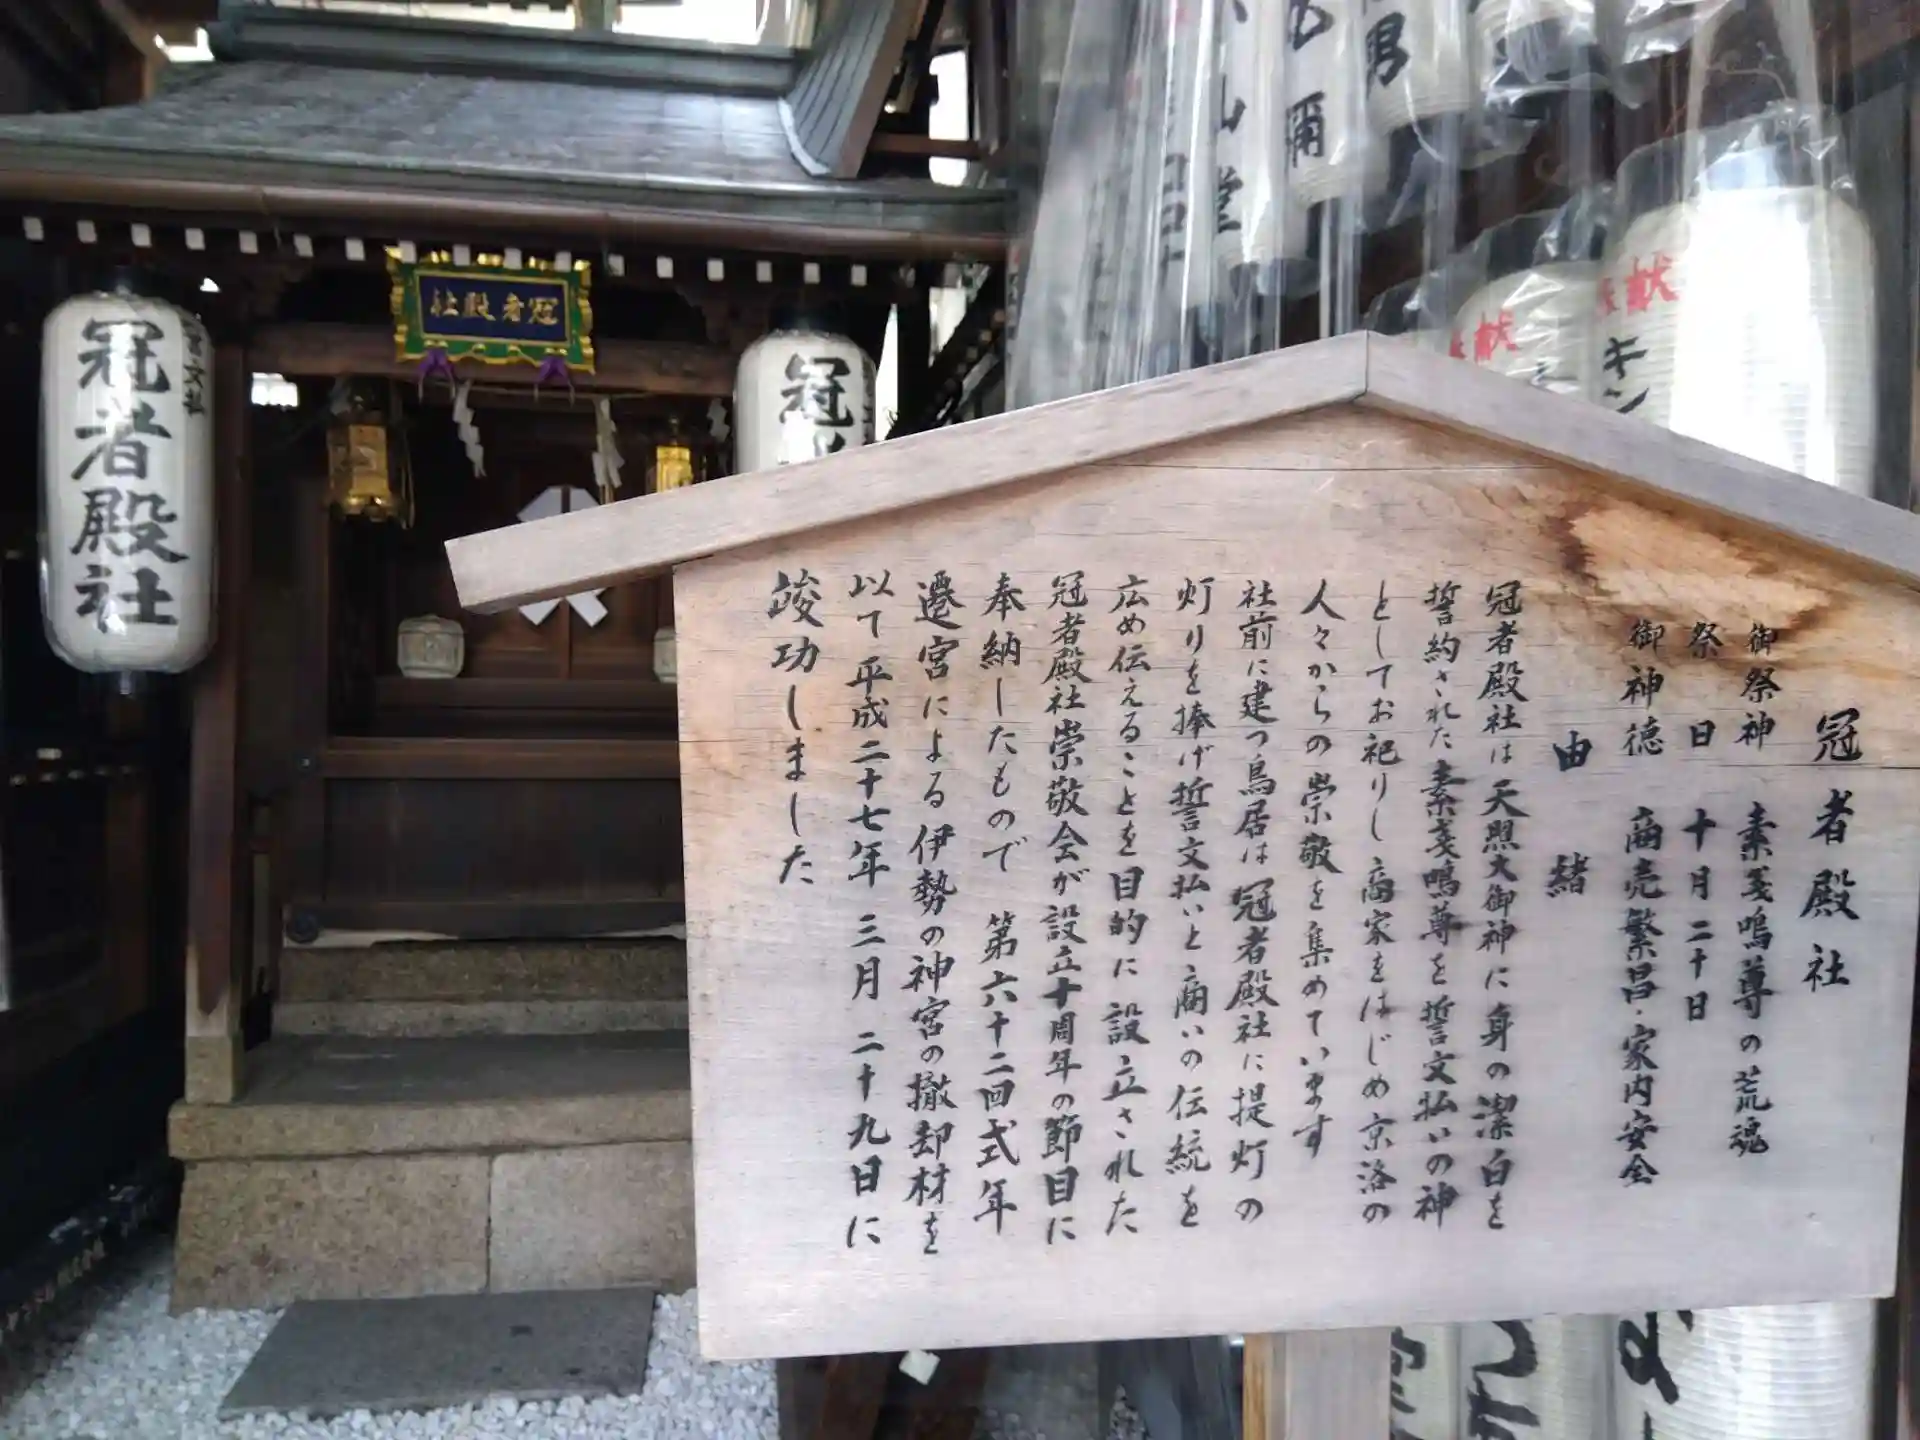 冠者殿社
御祭神 素戔鳴尊の荒魂
祭日 十月二十日
御神徳 商売繁昌・家内安全
由緒
冠者殿社は天照大御神に身の潔白を
誓約された素戔鳴尊を誓文払いの神
としてお祀りし商家をはじめ京洛の
人々からの崇敬を集めています
社前に建つ鳥居は冠者殿社に提灯の
灯りを捧げ誓文払いと商いの伝統を
広め伝えることを目的に設立された
冠者殿社崇敬会が設立十周年の節目に
奉納したもので 第六十二回式年
遷宮による伊勢の神宮の撤却材を
以て平成二十七年三月二十九日に
竣功しました
冠者殿社
冠者殿社
文払
冠
男
彌
堂
献
キン
献